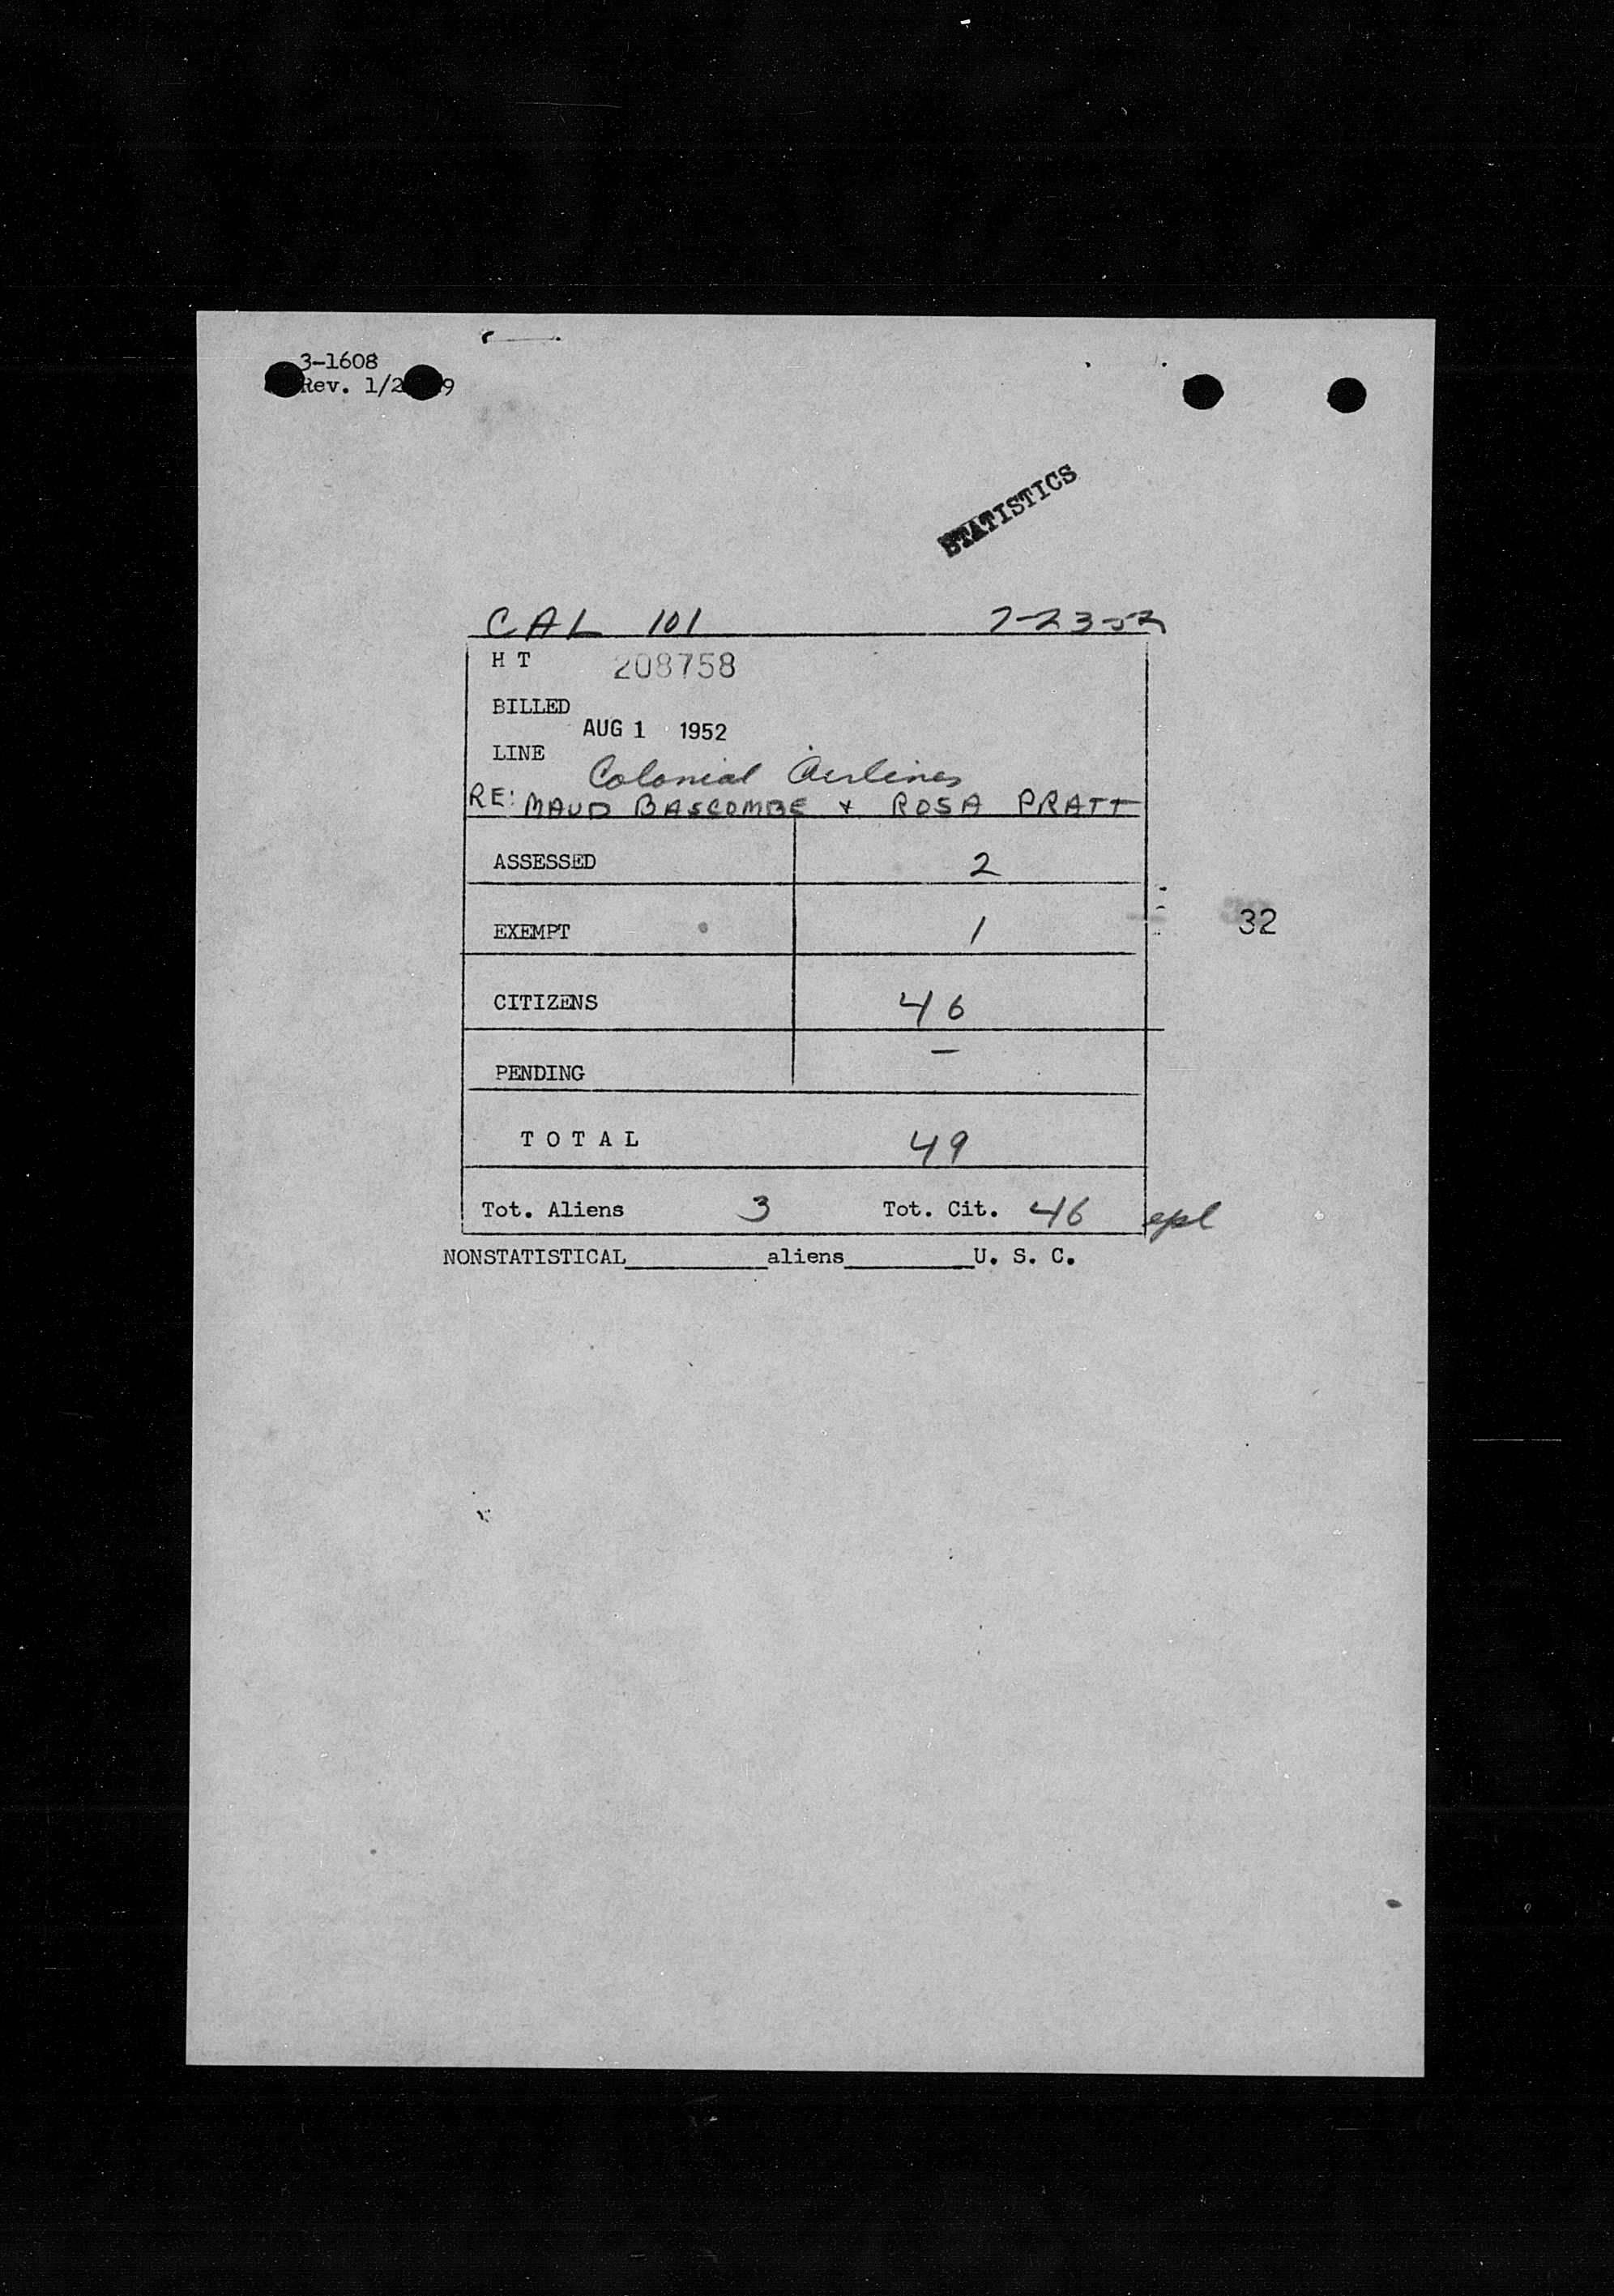 3-1608
Rev. 1/2 9
STATISTICS
CAL 101 7-23-52
H T 208758
BILLED
AUG 1 1952
LINE Colonial Airlines
RE: MAUD BASCOMBE + ROSA PRATT
ASSESSED 2
EXEMPT 1
32
CITIZENS 46
PENDING –
T O T A L 49
Tot. Aliens 3 Tot. Cit. 46 epl
NONSTATISTICAL__________aliens_________U. S. C.